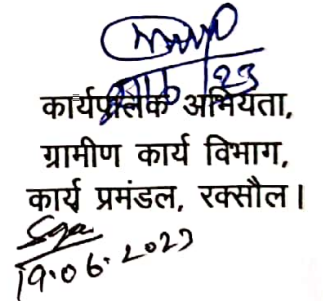 कार्यपालक अभियंता,
ग्रामीण कार्य विभाग,
कार्य प्रमंडल, रक्सौल।
19.06.2023